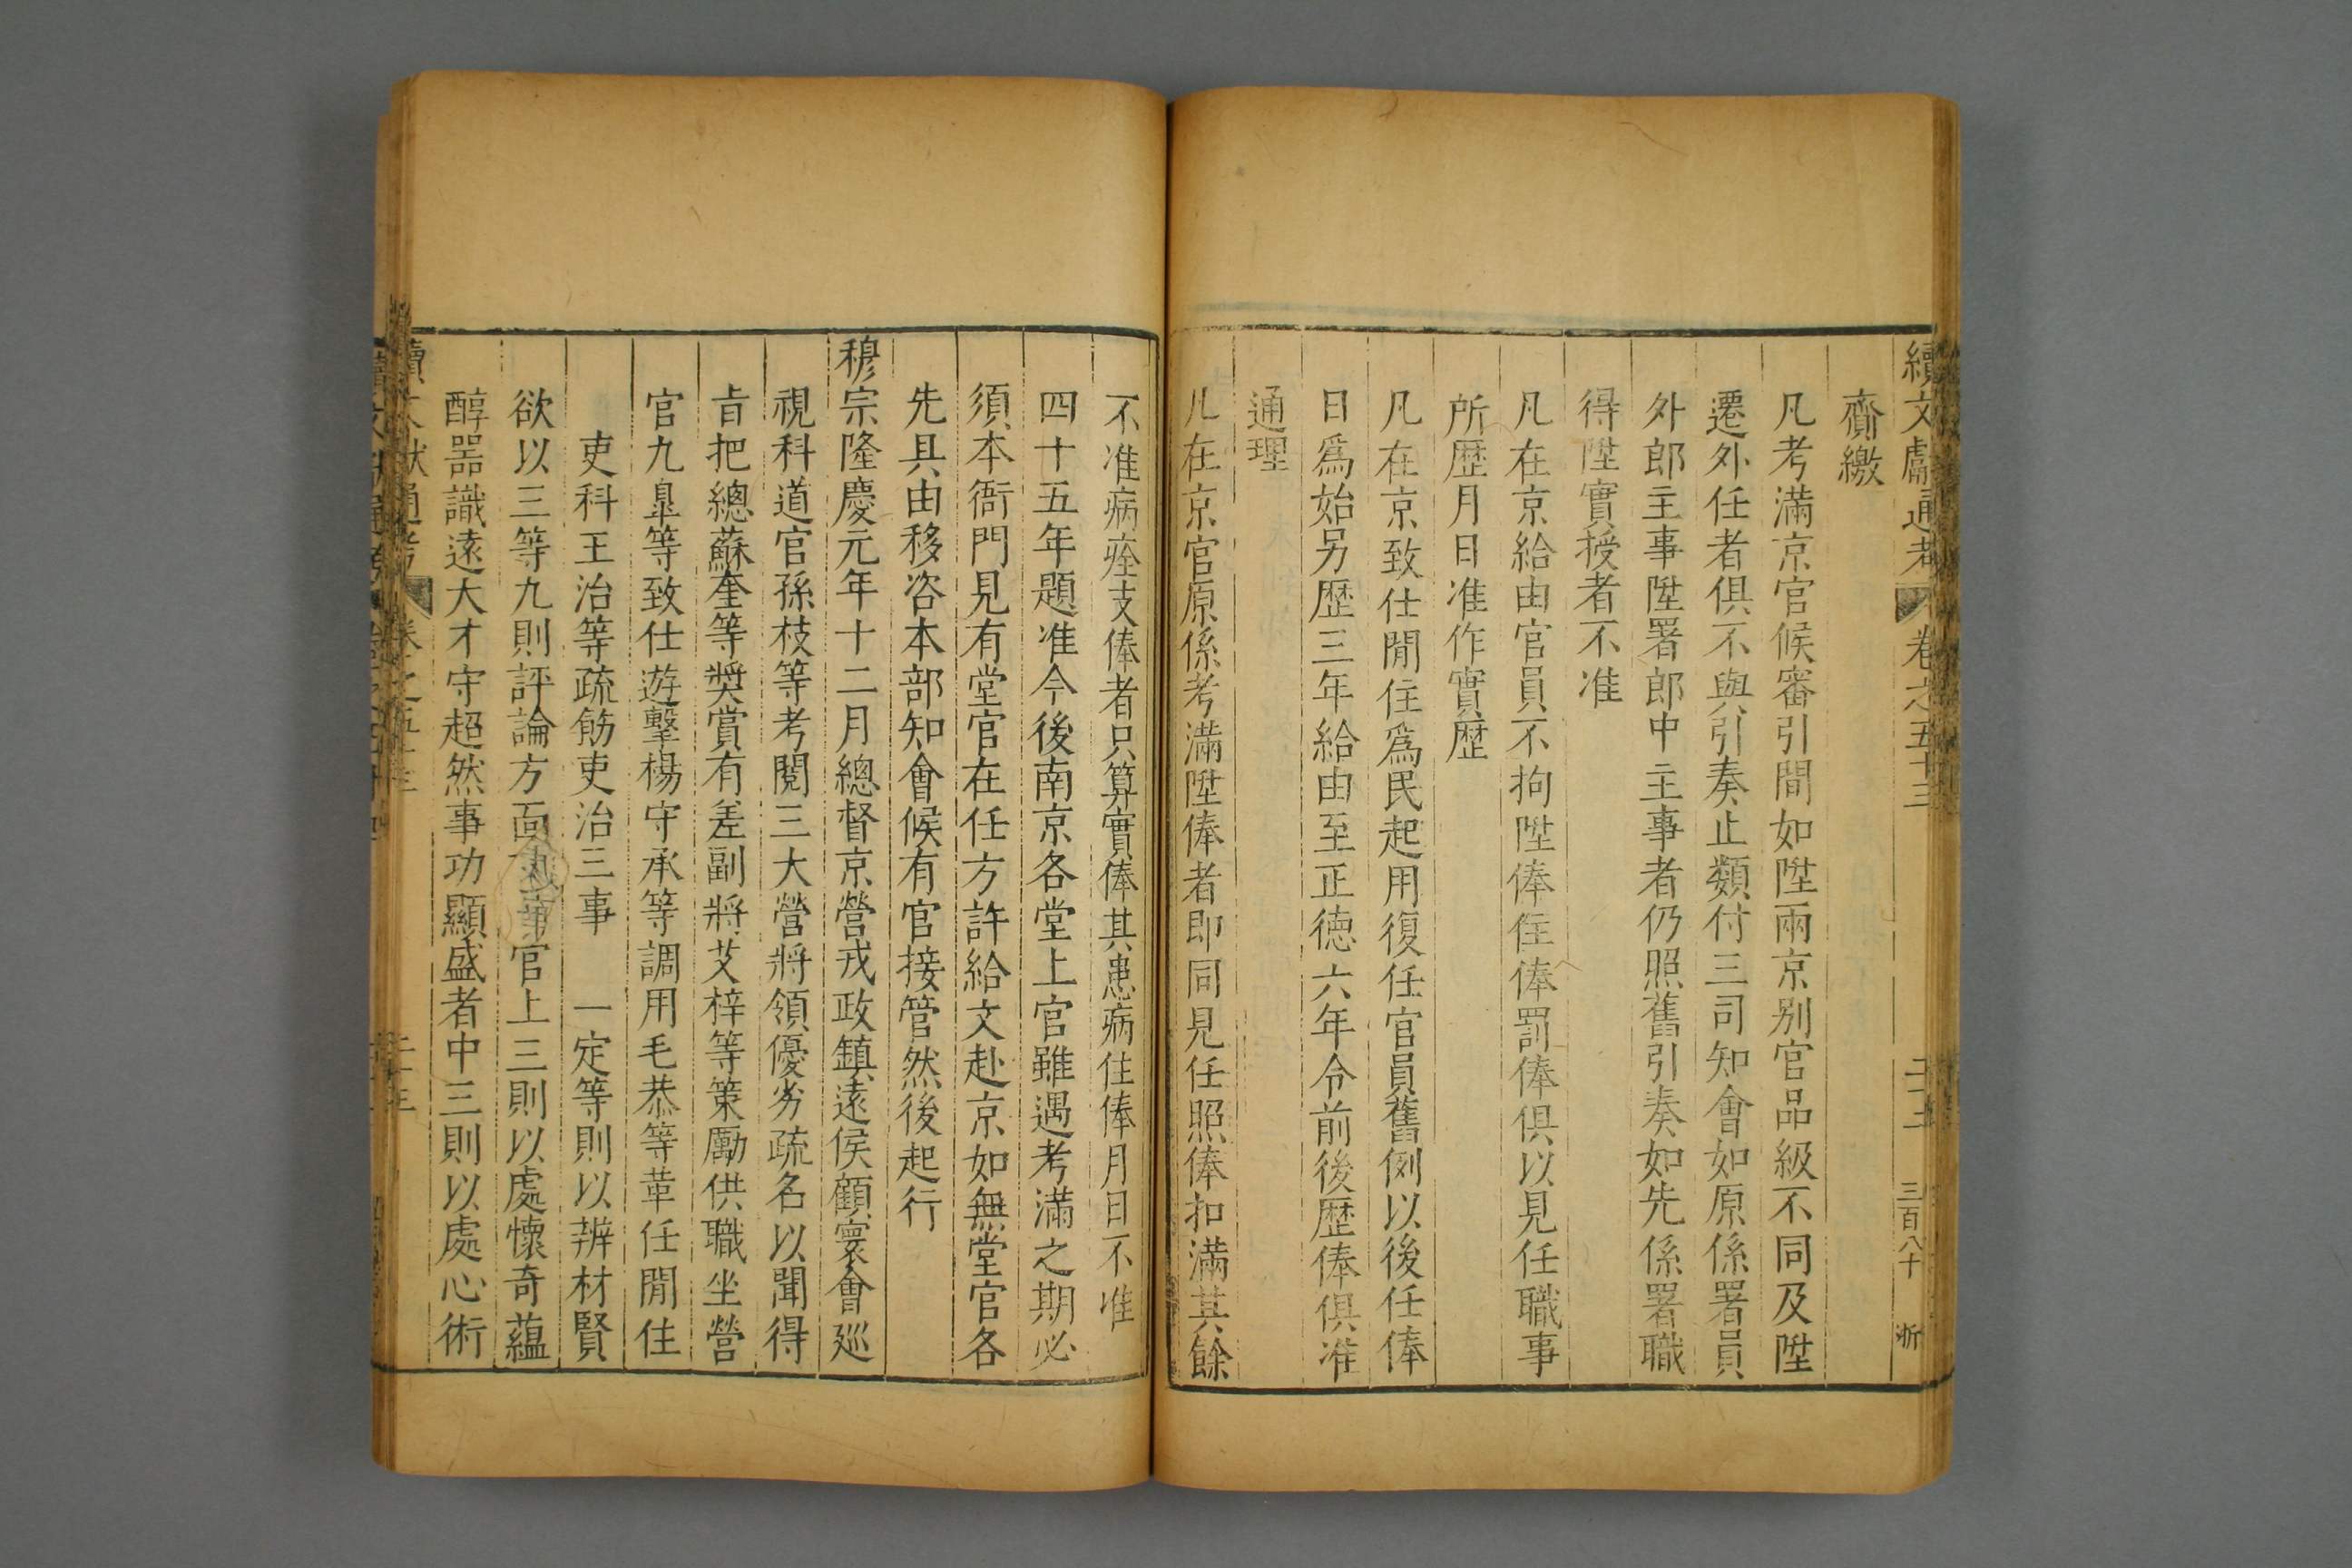 續文獻通考 卷之五十三 二十二 三百八十
齎繳
凡考滿京官候審引間如陞兩京别官品級不同及陞
遷外任者俱不與引奏止類付三司知會如原係署員
外郎主事陞署郎中主事者仍照舊引奏如先係署職
得陞實授者不准
凡在京給由官員不拘陞俸住俸罰俸俱以見任職事
所歴月日准作實歴
凡在京致仕閒住爲民起用復任官員舊例以後任俸
日爲始另歴三年給由至正德六年令前後歴俸俱准
通理
凡在京官原係考滿陞俸者即同見任照俸扣滿其餘
不准病痊支俸者只算實俸其患病住俸月日不准
四十五年題准今後南京各堂上官雖遇考滿之期必
須本衙門見有堂官在任方許給文赴京如無堂官各
先具由移咨本部知會候有官接管然後起行
穆宗隆慶元年十二月總督京營戎政鎮遠侯顧寰會廵
視科道官孫枝等考閱三大營將領優劣疏名以聞得
㫖把總蘇奎等奬賞有差副將艾梓等策勵供職坐營
官九臯等致仕遊擊楊守承等調用毛恭等革任閒住
吏科王治等疏飭吏治三事 一定等則以辨材賢
欲以三等九則評論方面官上三則以處懷奇蘊
醇器識遠大才守超然事功顯盛者中三則以處心術